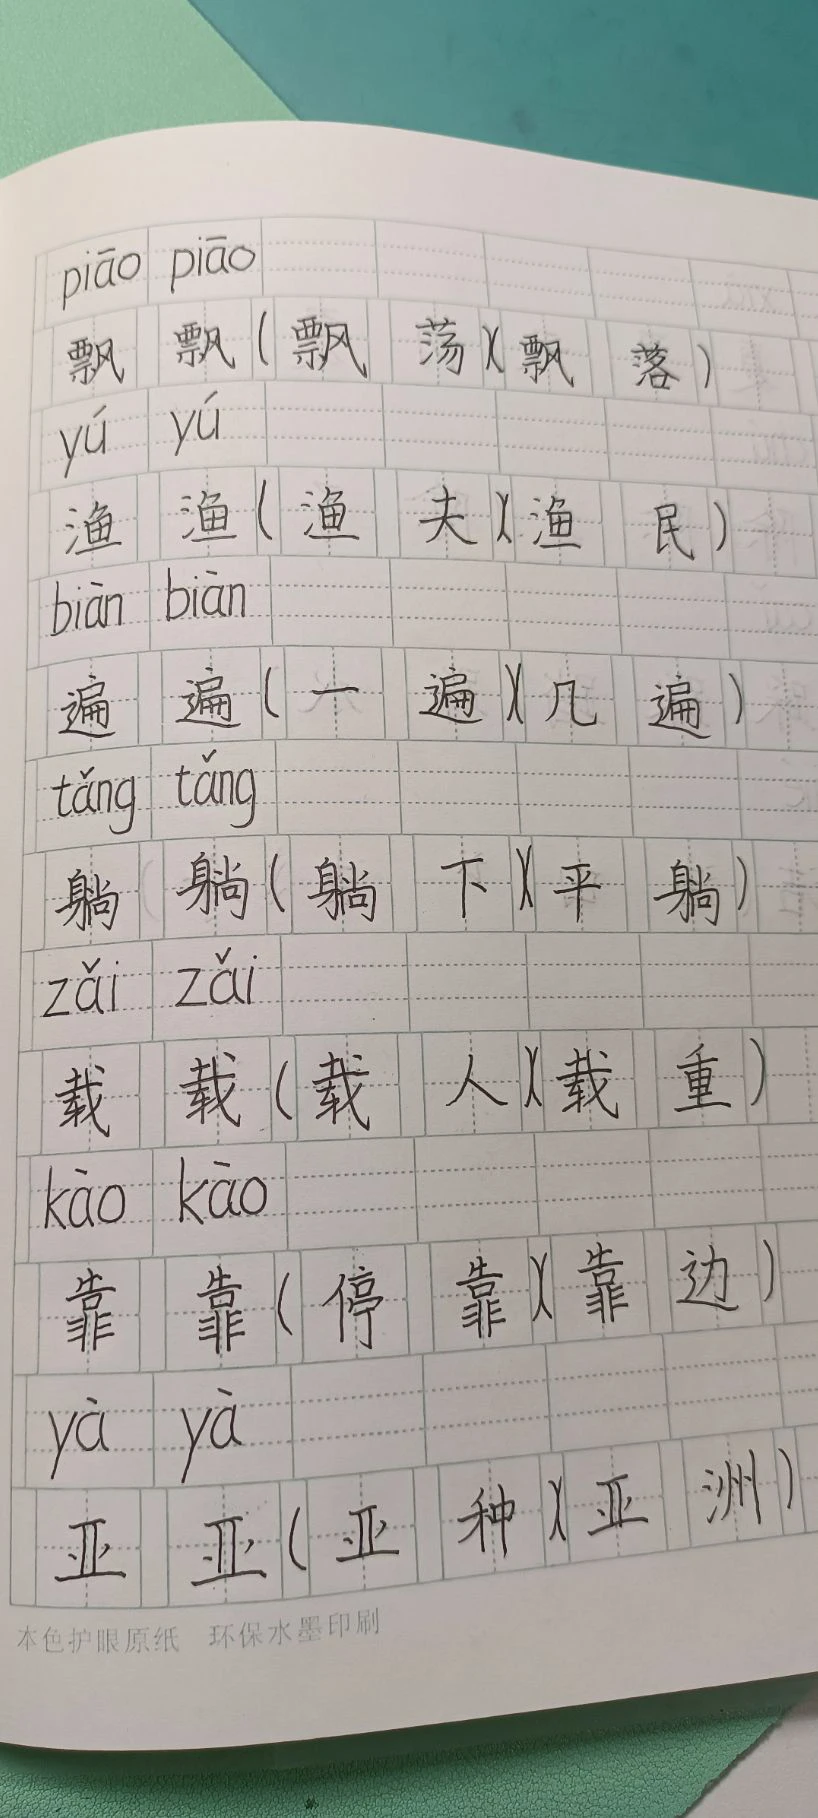 piāo piāo
飘 飘(飘 荡)(飘 落)
yú yú
渔 渔(渔 夫)(渔 民)
biàn biàn
遍 遍(一 遍)(几 遍)
tǎng tǎng
躺 躺(躺 下)(平 躺)
zǎi zǎi
载 载(载 人)(载 重)
kào kào
靠 靠(停 靠)(靠 边)
yà yà
亚 亚(亚 种)(亚 洲)
本色护眼原纸 环保水墨印刷